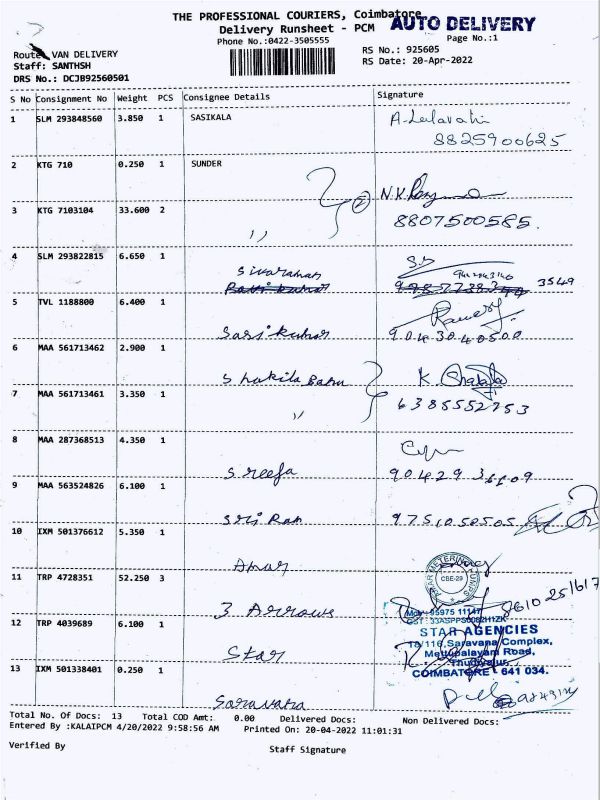 THE PROFESSIONAL COURIERS, Coimbatore
AUTO DELIVERY
Delivery Runsheet - PCM
Page No.:1
Phone No.:0422-3505555
Route VAN DELIVERY
RS No.: 925605
Staff: SANTHSH
RS Date: 20-Apr-2022
DRS No.: DCJB92560501
S No Consignment No Weight PCS Consignee Details Signature
1 SLM 293848560 3.850 1 SASIKALA A. Leelavathi
8825900625
2 KTG 710 0.250 1 SUNDER
2 N.K.
3 KTG 7103104 33.600 2 8807500585.
,,
4 SLM 293822815 6.650 1
Sivaraman 3549
5 TVL 1188800 6.400 1
Sasikumar 9043040500
6 MAA 561713462 2.900 1
Shakila Banu K.
7 MAA 561713461 3.350 1 6385552753
,,
8 MAA 287368513 4.350 1
Sreeja
9 MAA 563524826 6.100 1
Sri Ram 9751050505
10 IXM 501376612 5.350 1
Amar
CBE-29
11 TRP 4728351 52.250 3
3 Arrows 8610251617
Mob: 95975 11147
12 TRP 4039689 6.100 1
STAR AGENCIES
18/116, Saravana Complex,
Star Mettupalayam Road,
Thudiyalur,
13 IXM 501338401 0.250 1 COIMBATORE - 641 034.
Saravana
Total No. Of Docs: 13 Total COD Amt: 0.00 Delivered Docs: Non Delivered Docs:
Entered By :KALAIPCM 4/20/2022 9:58:56 AM Printed On: 20-04-2022 11:01:31
Verified By Staff Signature